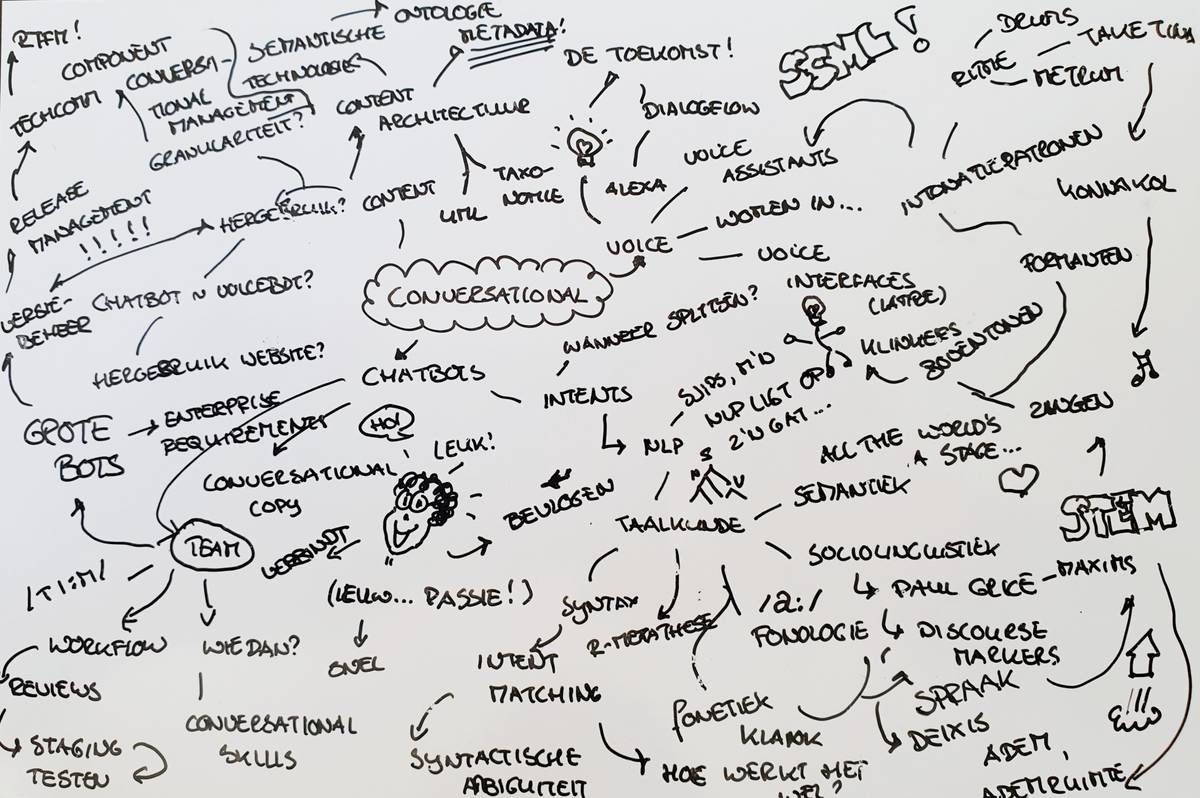 RTFM!
COMPONENT
TECHCOMM
CONVERSA-
TIONAL
MANAGEMENT
GRANULARITEIT?
SEMANTISCHE
TECHNOLOGIE
ONTOLOGIE
METADATA!
CONTENT
ARCHITECTUUR
DE TOEKOMST!
DIALOGFLOW
SSML!
DRUMS
RITME
TAKETINA
METRUM
RELEASE
MANAGEMENT
!!!!!
HERGEBRUIK?
CONTENT
XML
TAXO-
NOMIE
ALEXA
VOICE
ASSISTANTS
INTONATIEPATRONEN
KONNAKOL
VOICE
WONEN IN...
VOICE
INTERFACES
(LATRE)
FORMANTEN
VERSIE-
BEHEER
CHATBOT ~ VOICEBOT?
CONVERSATIONAL
HERGEBRUIK WEBSITE?
WANNEER SPLITSEN?
KLINKERS
BOVENTONEN
CHATBOTS
INTENTS
SJIPS, M'N
NLP LIGT OP
Z'N GAT...
NLP
ZANGEN
GROTE
BOTS
ENTERPRISE
REQUIREMENTS
HOI
LEUK!
CONVERSATIONAL
COPY
BEVLOGEN
ALL THE WORLD'S
A STAGE...
N S V
SEMANTIEK
TAALKUNDE
STEM
TEAM
VERBINDT
/TI:M/
(LEUK... PASSIE!)
SOCIOLINGUISTIEK
PAUL GRICE
MAXIMS
WORKFLOW
WIE DAN?
SNEL
SYNTAX
R-METATHESE
/a:/
FONOLOGIE
DISCOURSE
MARKERS
REVIEWS
INTENT
MATCHING
FONETIEK
KLANK
SPRAAK
DEIXIS
STAGING
TESTEN
CONVERSATIONAL
SKILLS
SYNTACTISCHE
AMBIGUITEIT
HOE WERKT HET
WEL?
ADEM,
ADEMRUIMTE